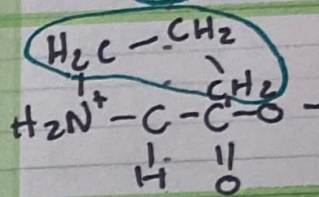 H₂C – CH₂
CH₂
H₂N⁺ – C – C – O –
H O